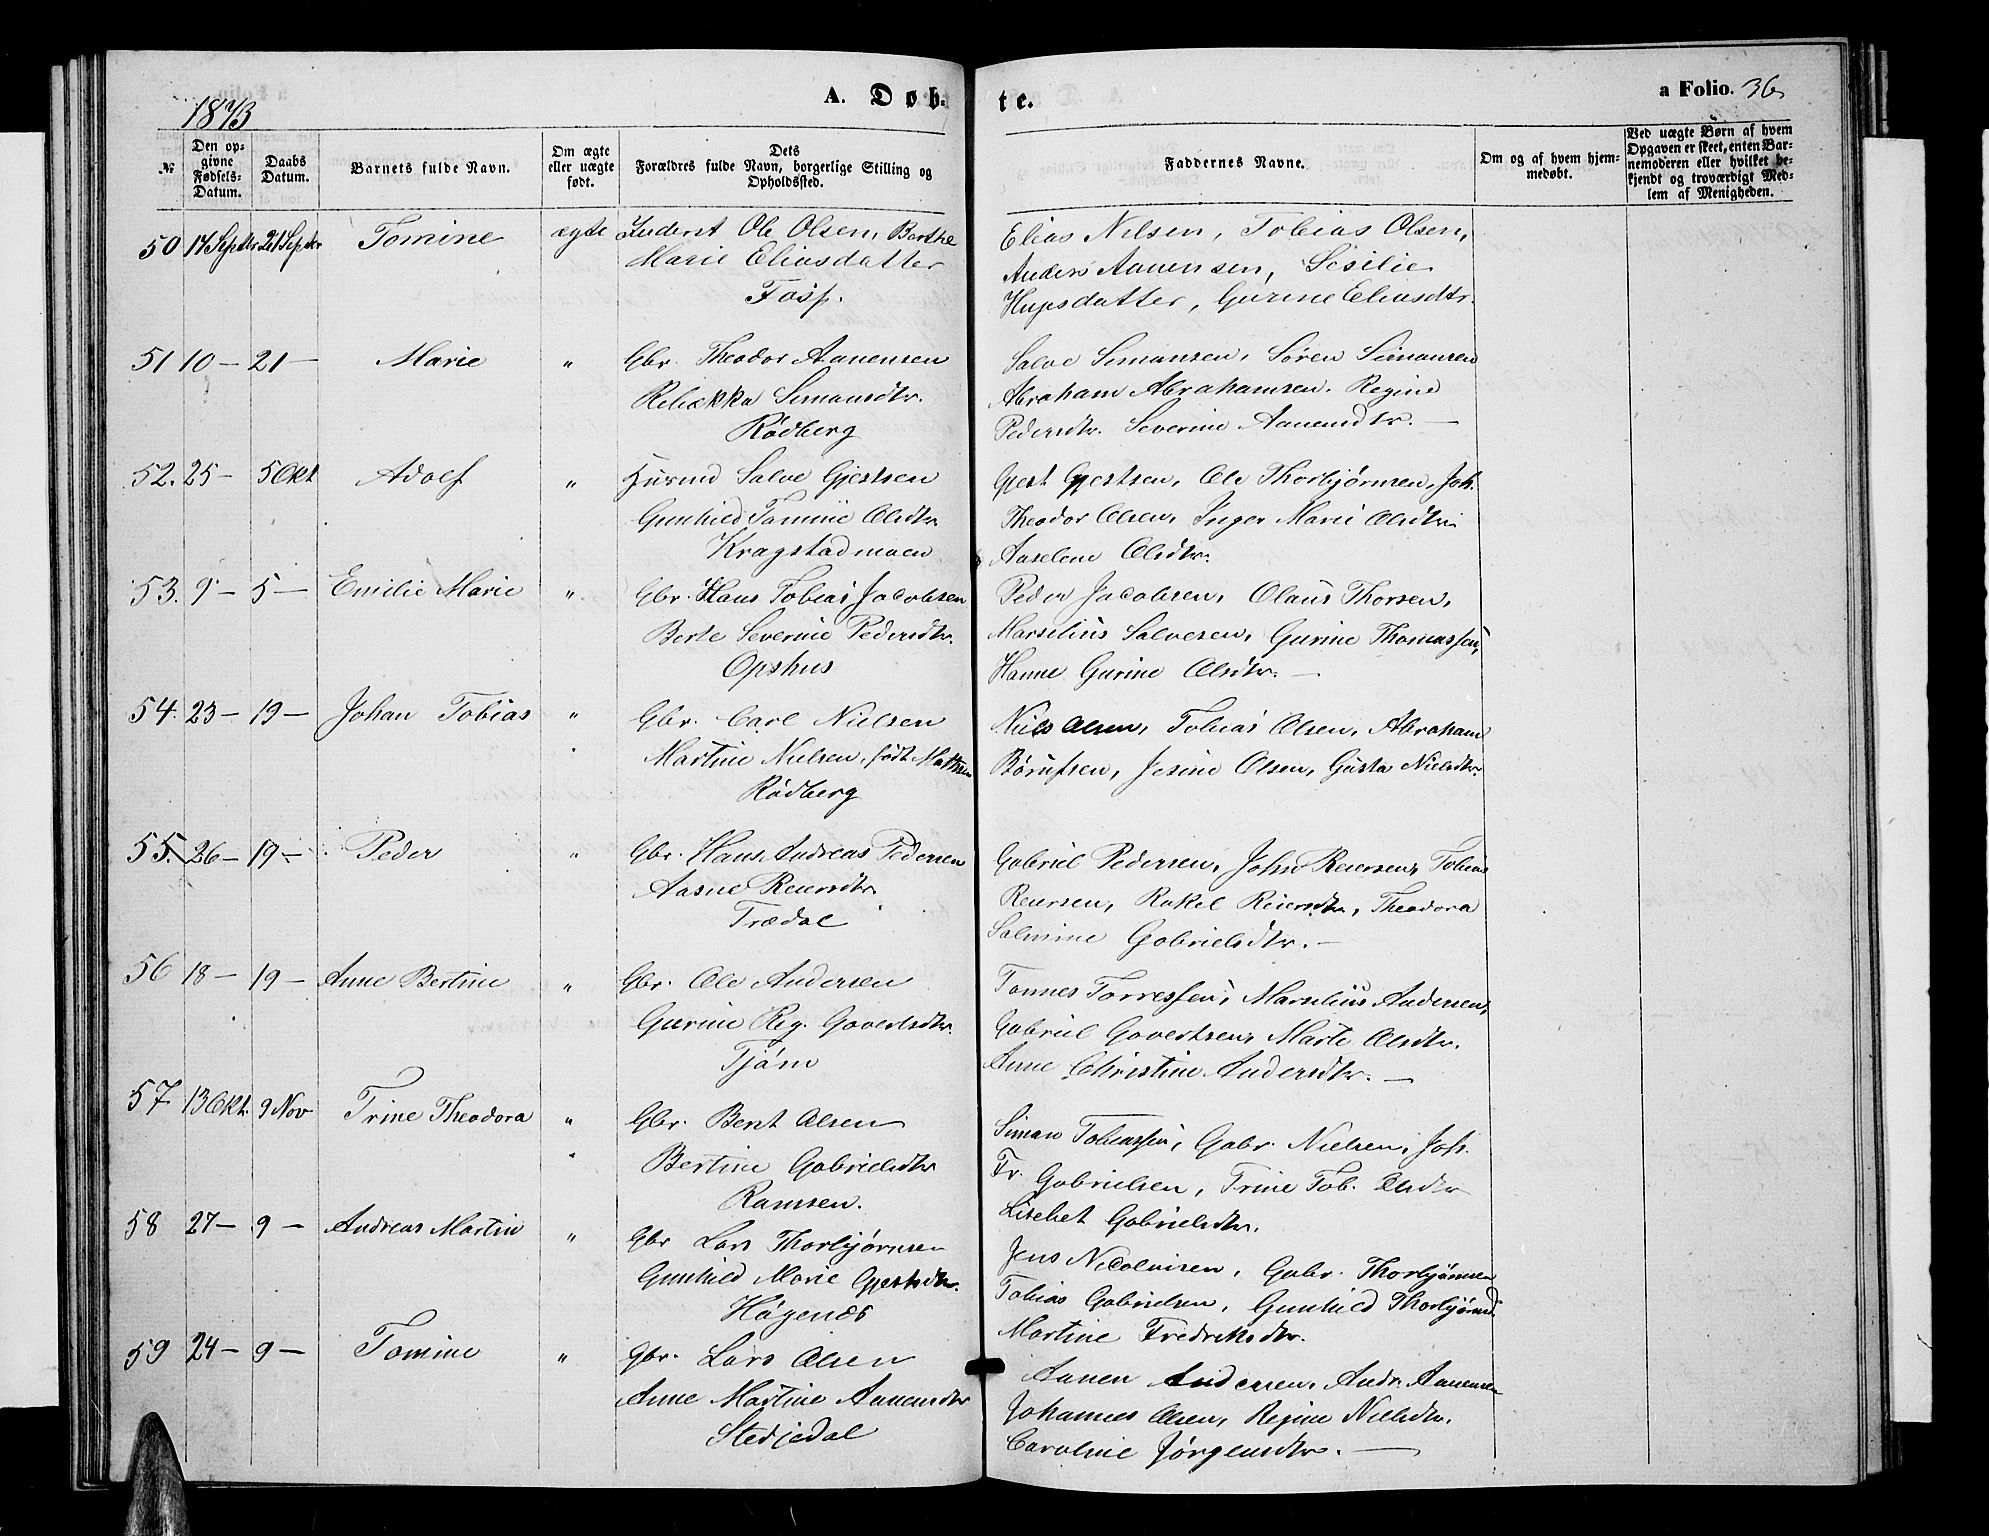 1873
A. Døbte.
a Folio. 36
№
Den opgivne Fødsels-Datum.
Daabs Datum.
Barnets fulde Navn.
Om ægte eller uægte født.
Dets Forældres fulde Navn, borgerlige Stilling og Opholdssted.
Faddernes Navne.
Om og af hvem hjemmedøbt.
Ved uægte Børn af hvem Opgaven er skeet, enten Barnemoderen eller hvilket bekjendt og troværdigt Medlem af Menigheden.
50 14 Septbr 21 Septbr Tomine ægte Inderst Ole Olsen, Berthe
Marie Eliasdatter
Foss.
Elias Nilsen, Tobias Olsen,
Anders Aanensen, Sesilie
Gurine Eliasdtr.
51 10 — 21 — Marie " Gbr. Theodor Aanensen
Rebekka Simonsdtr.
Rødberg
Salve Simonsen, Søren Simonsen
Abraham Abrahamsen. Regine
Pedersdtr. Severine Aanensdtr. —
52. 25 — 5 Okt Adolf " Husmd Salve Gjertsen
Gunhild Tomine Olsdtr.
Kragstadmoen
Gjert Gjertsen, Ole Thorbjørnsen, Joh.
Theodor Olsen, Inger Marie Olsdtr.
Aaselene Olsdtr.
53. 9 — 5 — Emilie Marie " Gbr. Hans Tobias Jacobsen
Berte Severine Pedersdtr.
Opshus
Peder Jacobsen, Olaus Thorsen,
Marselius Salvesen, Gurine Thomassen,
Hanne Gurine Olsdtr. —
54. 23 — 19 — Johan Tobias " Gbr. Carl Nielsen
Martine Nielsen, født
Rødberg
Niels Olsen, Tobias Olsen, Abraham
Børufsen, Jesine Olsen, Gusta Nielsdtr.
55. 26 — 19 — Peder " Gbr. Hans Andreas Pedersen
Aasne Reiersdtr.
Trædal
Gabriel Pedersen, John Reiersen, Tobias
Reiersen, Rakel Reiersdtr, Theodora
Salmine Gabrielsdtr. —
56 18 — 19 — Anne Bertine " Gbr. Ole Andersen
Gurine Reg. Govertsdtr.
Tjøm
Tønnes Torressen, Marselius Andersen,
Gabriel Govertsen, Marte Olsdtr.
Anne Christine Andersdtr. —
57 13 Okt. 9 Nov Trine Theodora " Gbr. Bent Olsen
Bertine Gabrielsdtr
Ramsen.
Simon Tobiassen, Gabr. Nielsen, Joh.
Fr. Gabrielsen, Trine Tob. Olsdtr
Lisebet Gabrielsdtr.
58 27 — 9 — Andreas Martin " Gbr Lars Thorbjørnsen
Gunhild Marie Gjertsdtr.
Høgenes
Jens Nicolaisen, Gabr. Thorbjørnsen
Tobias Gabrielsen, Gunhild Thorbjørnsd
Martine Fredriksdtr.
59 24 — 9 — Tomine " Gbr. Lars Olsen
Anne Martine Aanensdtr
Stedjedal
Aanen Andersen, Andr. Aanensen
Johannes Olsen, Regine Nielsdtr.
Caroline Jørgensdtr. —